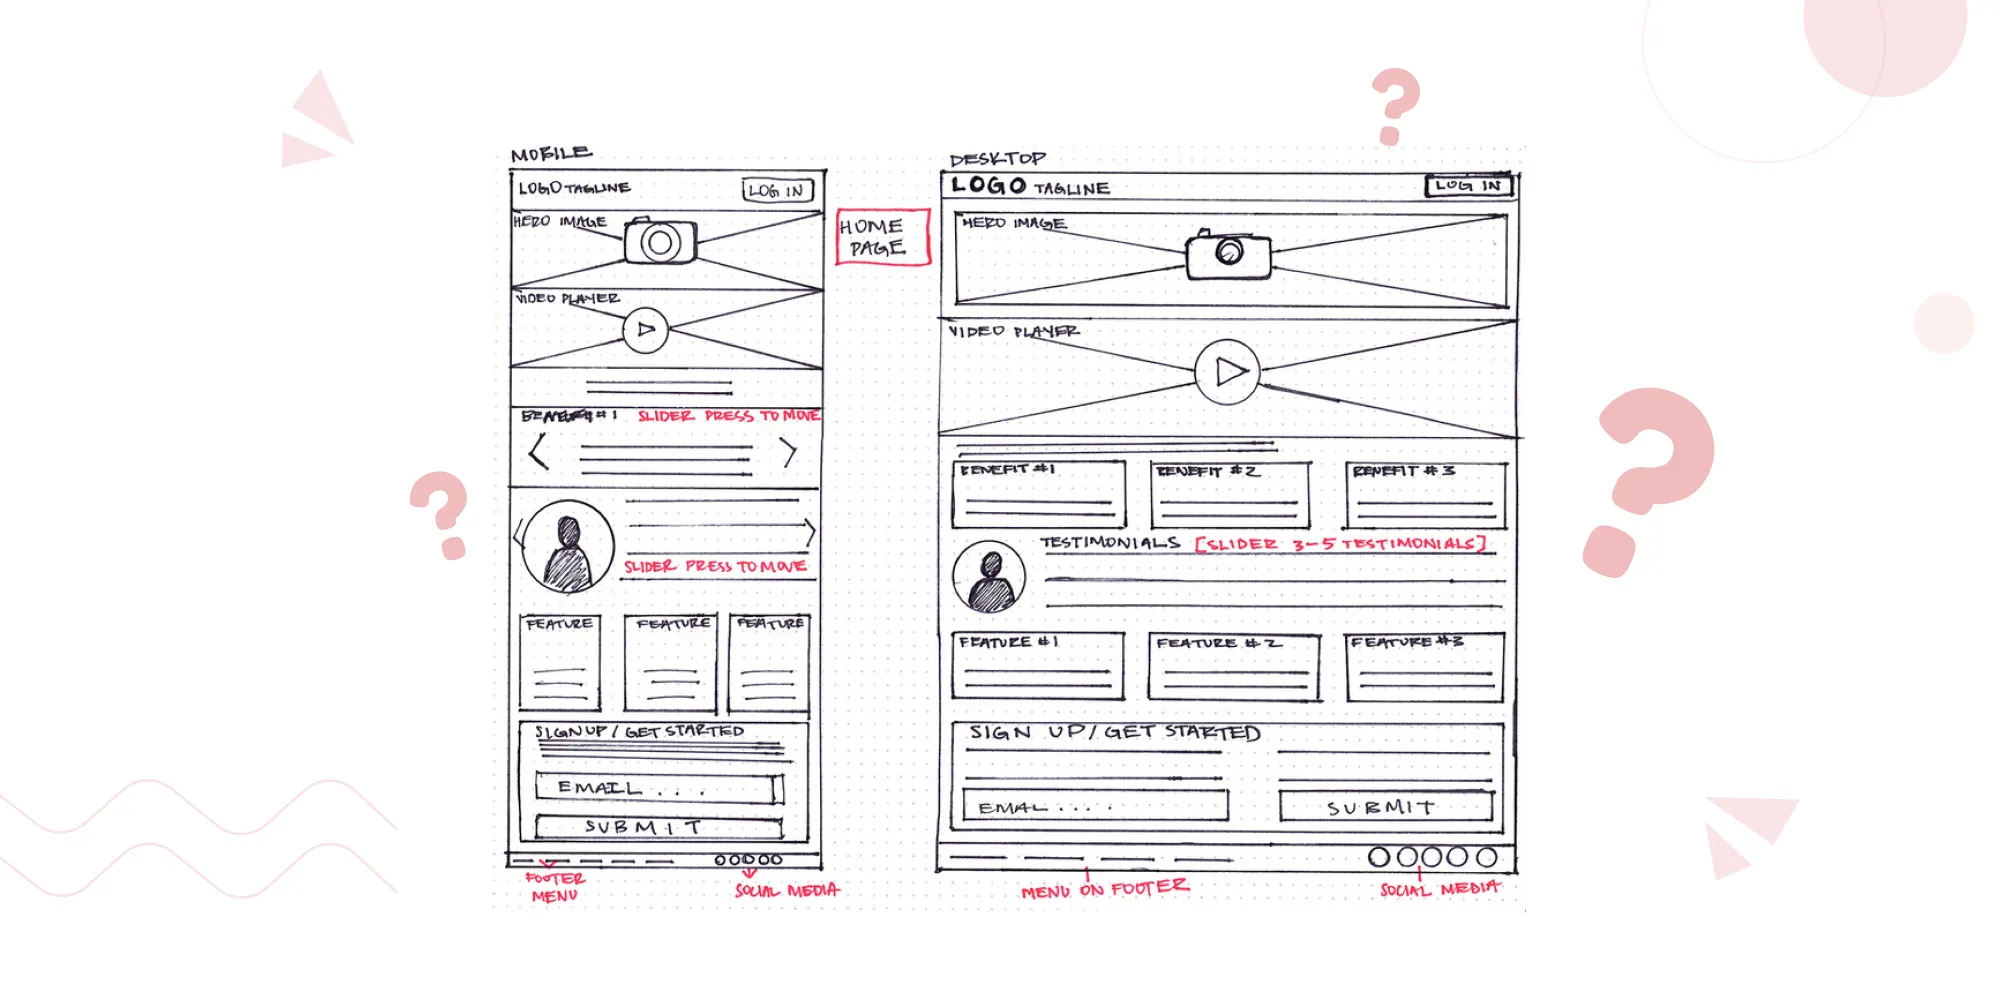 MOBILE
LOGO TAGLINE
LOG IN
HERO IMAGE
VIDEO PLAYER
#1 SLIDER PRESS TO MOVE
SLIDER PRESS TO MOVE
FEATURE FEATURE FEATURE
SIGN UP / GET STARTED
EMAIL ....
SUBMIT
FOOTER
MENU
SOCIAL MEDIA
HOME
PAGE
DESKTOP
LOGO TAGLINE
LOG IN
HERO IMAGE
VIDEO PLAYER
BENEFIT #1 BENEFIT #2 BENEFIT #3
TESTIMONIALS [SLIDER 3-5 TESTIMONIALS]
FEATURE #1 FEATURE #2 FEATURE #3
SIGN UP / GET STARTED
EMAL .....
SUBMIT
MENU ON FOOTER
SOCIAL MEDIA